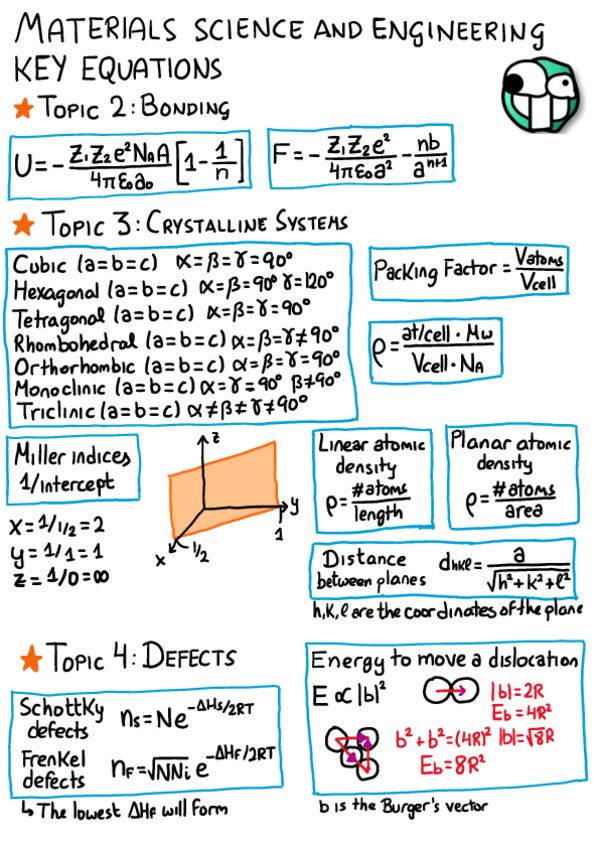 MATERIALS SCIENCE AND ENGINEERING
KEY EQUATIONS
★ TOPIC 2: BONDING
U = - Z₁Z₂e²NₐA / 4πε₀a₀ [1 - 1/n]
F = - Z₁Z₂e² / 4πε₀a² - nb / aⁿ⁺¹
★ TOPIC 3: CRYSTALLINE SYSTEMS
Cubic (a=b=c) α=β=γ=90°
Hexagonal (a=b=c) α=β=90° γ=120°
Tetragonal (a=b=c) α=β=γ=90°
Rhombohedral (a=b=c) α=β=γ≠90°
Orthorhombic (a=b=c) α=β=γ=90°
Monoclinic (a=b=c) α=γ=90° β≠90°
Triclinic (a=b=c) α≠β≠γ≠90°
Packing Factor = Vatoms / Vcell
ρ = at/cell · Mw / Vcell · NA
Miller indices
1/intercept
x = 1/1/2 = 2
y = 1/1 = 1
z = 1/0 = ∞
z
y
1
x
1/2
Linear atomic
density
ρ = #atoms / length
Planar atomic
density
ρ = #atoms / area
Distance
between planes
dhkl = a / √h²+k²+l²
h,k,l are the coordinates of the plane
★ TOPIC 4: DEFECTS
Schottky
defects
ns = Ne^-ΔHs/2RT
Frenkel
defects
nF = √NNi e^-ΔHF/2RT
↳ The lowest ΔHF will form
Energy to move a dislocation
E ∝ |b|²
|b| = 2R
Eb = 4R²
b² + b² = (4R)² |b| = √8R
Eb = 8R²
b is the Burger's vector